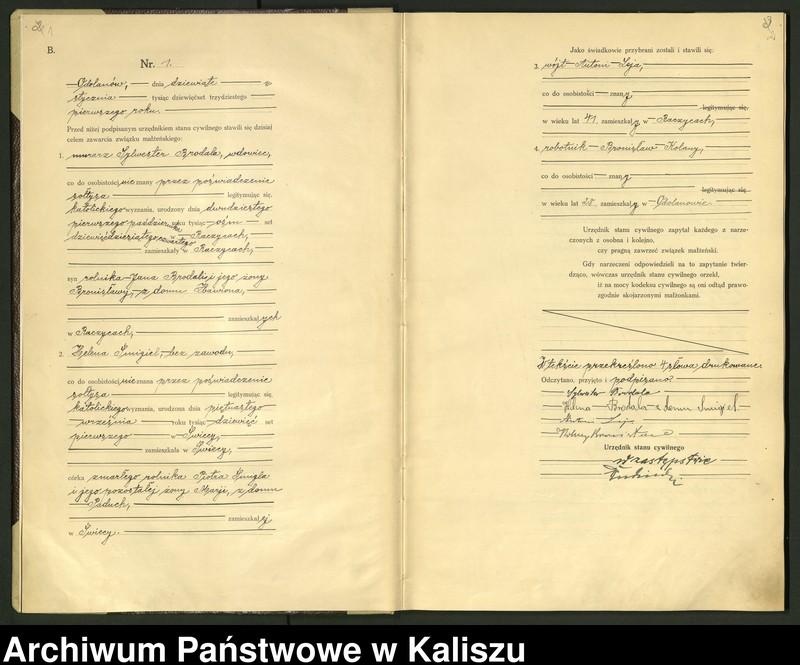 B.
Nr. 1.
Odolanów, dnia dziewiąte
stycznia tysiąc dziewięćset trzydziestego
pierwszego roku.
Przed niżej podpisanym urzędnikiem stanu cywilnego stawili się dzisiaj
celem zawarcia związku małżeńskiego:
1. murarz Sylwester Brodala, wdowiec,
co do osobistości nie znany przez poświadczenie
sołtysa legitymując się,
katolickiego wyznania, urodzony dnia dwudziestego
pierwszego października roku tysiąc ośm set
dziewięćdziesiątego czwartego w Raczycach,
zamieszkały w Raczycach,
syn rolnika Jana Brodali i jego żony
Bronisławy, z domu
zamieszkałych
w Raczycach,
2. Helena Śmigiel, bez zawodu,
co do osobistości nie znana przez poświadczenie
sołtysa legitymując się,
katolickiego wyznania, urodzona dnia piętnastego
września roku tysiąc dziewięć set
pierwszego w Świecy,
zamieszkała w Świecy,
córka zmarłego rolnika Piotra Śmigla
i jego pozostałej żony Marji, z domu
Paduch,
zamieszkałej
w Świecy.
Jako świadkowie przybrani zostali i stawili się:
3. wójt Antoni Leja,
co do osobistości znany
legitymując się,
w wieku lat 41, zamieszkały w Raczycach,
4. robotnik Bronisław Kolany,
co do osobistości znany
legitymując się,
w wieku lat 28, zamieszkały w Odolanowie.
Urzędnik stanu cywilnego zapytał każdego z narze-
czonych z osobna i kolejno,
czy pragną zawrzeć związek małżeński.
Gdy narzeczeni odpowiedzieli na to zapytanie twier-
dząco, wówczas urzędnik stanu cywilnego orzekł,
iż na mocy kodeksu cywilnego są oni odtąd prawo-
zgodnie skojarzonymi małżonkami.
W tekście przekreślono 4 słowa drukowane.
Odczytano, przyjęto i podpisano:
Sylwester Brodala
Helena Brodala z domu Śmigiel
Antoni Leja
Kolany Bronisław
Urzędnik stanu cywilnego
w zastępstwie
Archiwum Państwowe w Kaliszu